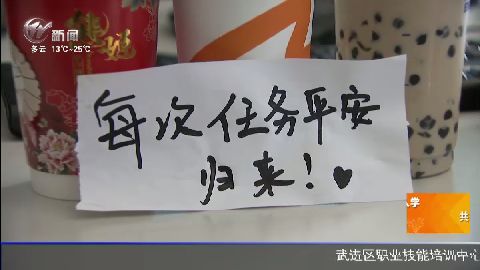 新闻
多云 13℃~25℃
每次任务平安
归来！♥
共
武进区职业技能培训中心